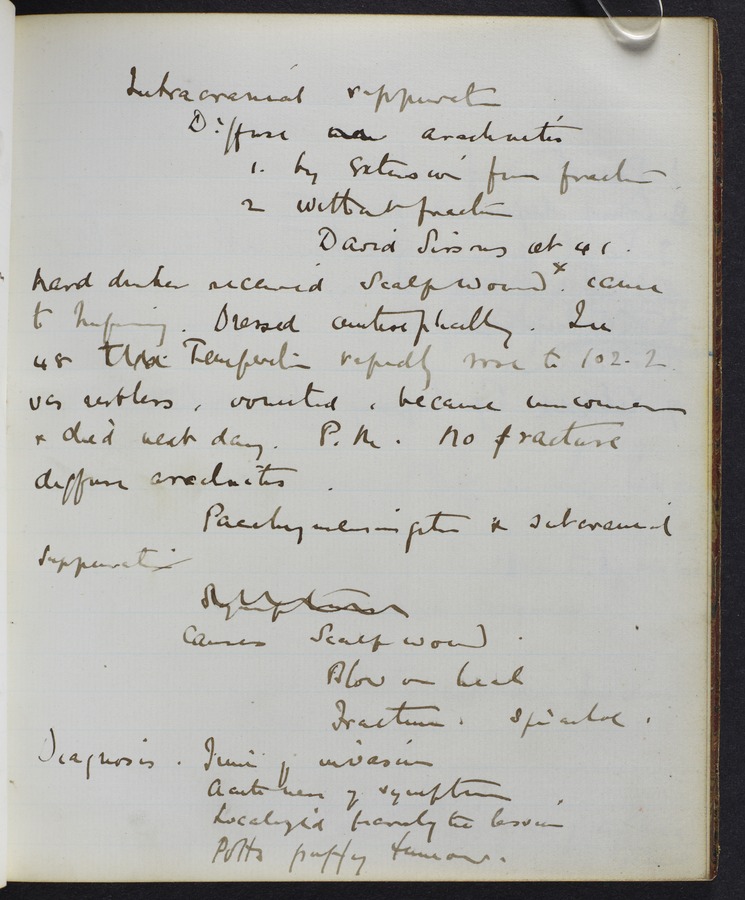 Intracranial suppuration
Diffuse arachnitis
1. by extension from fracture
2 without fracture
David Sissons æt 41.
hard drinker received Scalp wound x. came
to Infirmary. Dressed antiseptically. In
48 Temperature rapidly rose to 102.2
was restless, vomited, became unconscious
& died next day. P.M. No fracture
diffuse arachnitis.
Pachymeningitis & subcranial
Suppuration
Symptoms
Causes Scalp wound.
Blow on head
Fracture.
Diagnosis. Time of invasion
Acuteness of symptoms
Localized lesion
Potts puffy tumour.